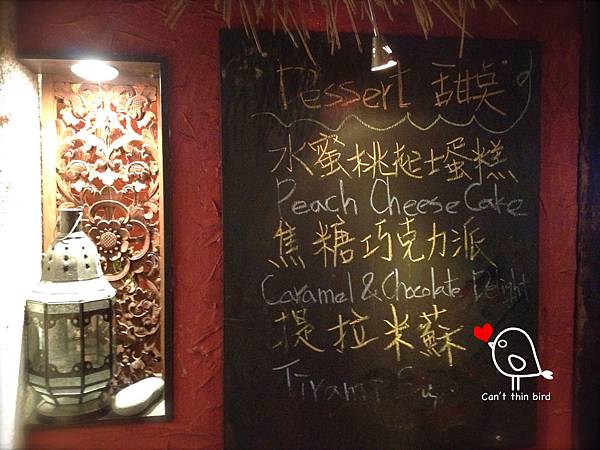 "Dessert 甜点"
水蜜桃起士蛋糕
Peach Cheese Cake
焦糖巧克力派
Caramel & Chocolate Delight
提拉米蘇
Tiramisu
Can't thin bird